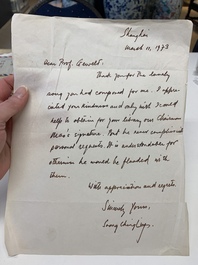 Shanghai
March 11, 1973
Dear Prof. Gewald:
Thank you for the lovely
song you had composed for me. I appre-
ciated your kindness and only wish I could
help to obtain for your library our Chairman
Mao's signature. But he never complies with
personal requests. It is understandable for
otherwise he would be flooded with
them.
With appreciation and regrets.
Sincerely Yours,
Soong Ching Ling.